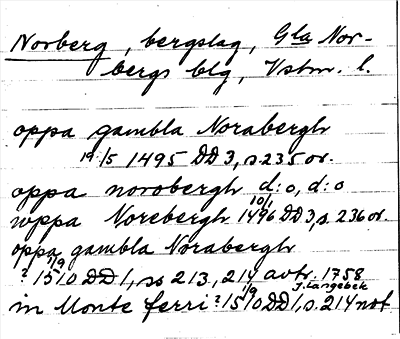 Norberg, bergslag, Gla Nor-
bergs blg, Vstm. l.
oppa gambla Norabergh
19/5 1495 DD 3, s. 235 or.
oppa norobergh d:o, d:o
wppa Norebergh 10/1 1496 DD 3, s. 236 or.
oppa gambla Norabergh
? 1/9 1510 DD 1, ss 213, 214 avtr. 1758
J. Langebek
in Monte ferri ? 1/9 1510 DD 1, s. 214 not